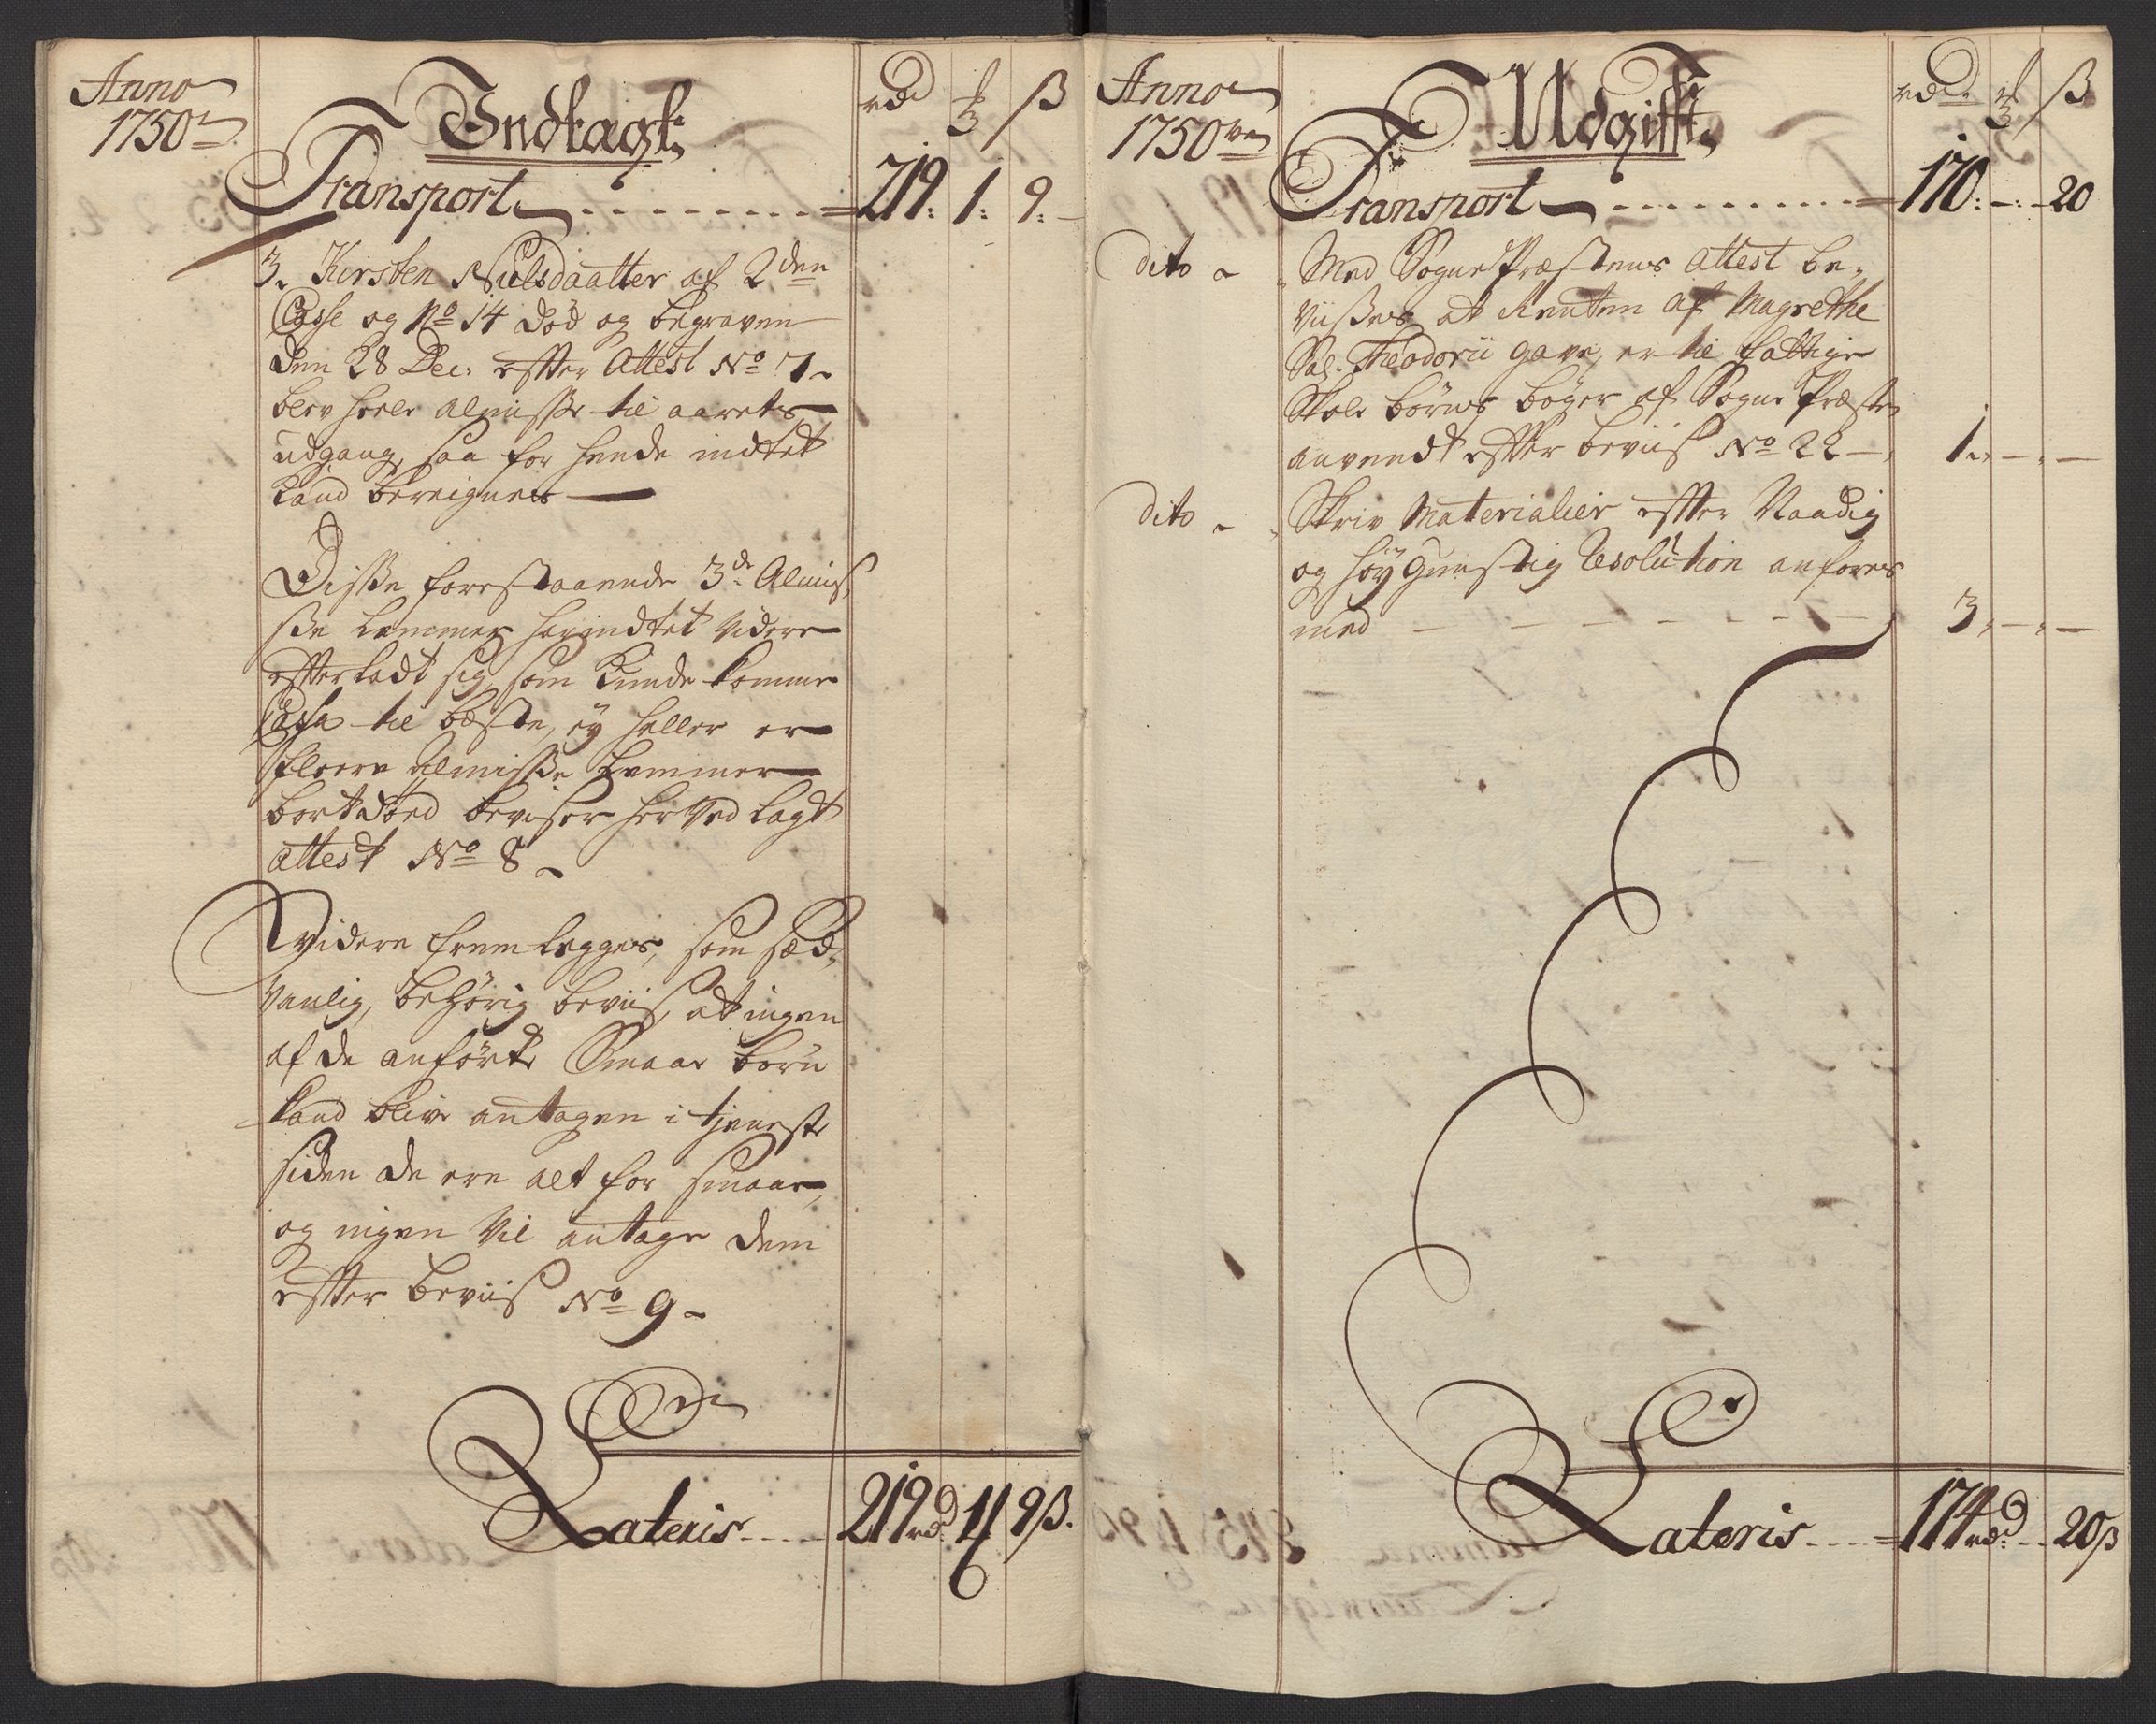 Anno
1750
Indtægt
rd ℳ ß
Transport 219: 1: 9:
3. Kirsten Nielsdaatter af 2den
Classe og No 14 død og begraven
den 28 Dec: effter Attest No 7
blev heele almisse til aarets
udgang, saa for hende indtet
kand bereignes
Disse forestaaende 3de Almis
se Lemmer har indtet videre
efterladt sig som kunde komme
Cassa til beste, ey heller er
fleere Almisse Lemmer
bortdöed beviser her ved lagt
attest No 8
Videre fremlegges, som sæd,
vanlig, behörig beviis, at ingen
af de anförte Smaae börn
kand blive antagen i tjeneste
siden de ere alt for smaae,
og ingen vil antage dem
effter beviis No 9
Lateris 219 rd 1 ℳ 9 ß.
Anno
1750
Udgifft
rd ℳ ß
Transport 170: 20
dito Med Sogne Præstens attest be,
viises at Renten af Magrethe
Sal. Theodorii gave, er til fattige
Skole börns böger af Sogne Præsten
anvendt effter beviis No 22 1
dito Skriv Materialier effter Naadig
og höy gunstig Resolution anföres
med 3
Lateris 174 rd 20 ß